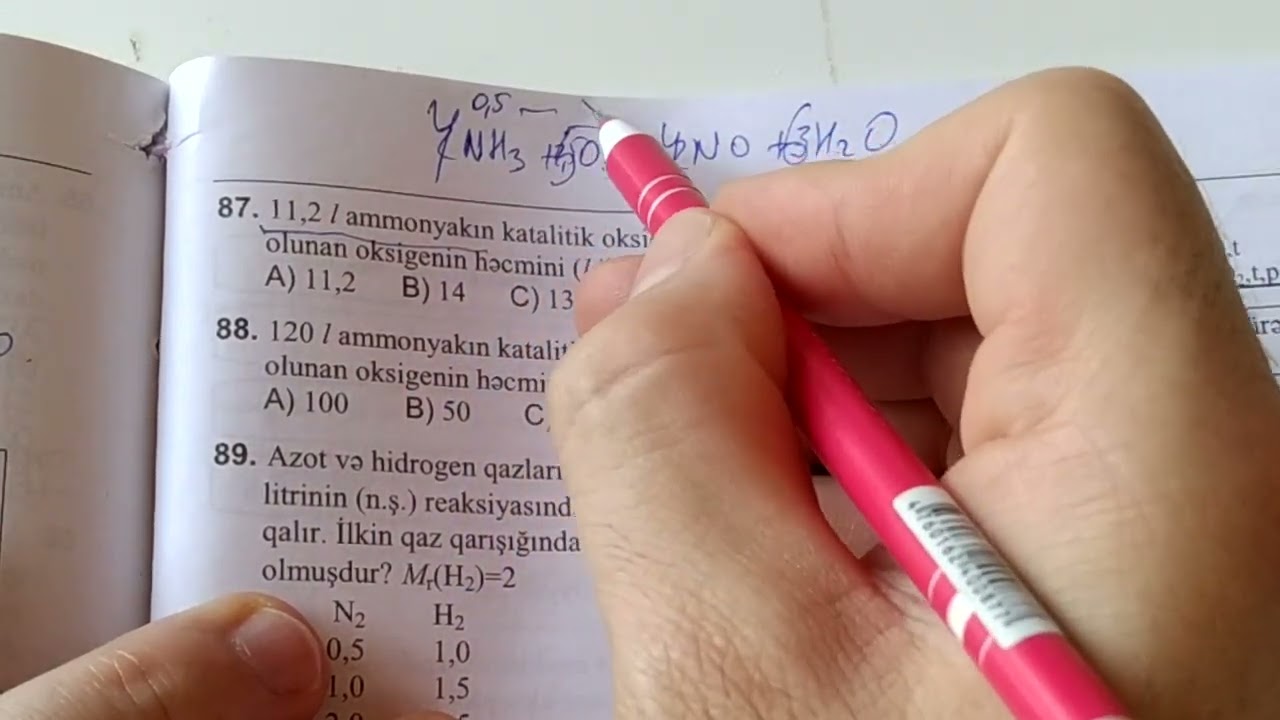 0,5 —
4NH3 + 5O 4NO + 6H2O
87. 11,2 l ammonyakın katalitik oksi
olunan oksigenin həcmini (l
A) 11,2 B) 14 C) 13
88. 120 l ammonyakın katalit
olunan oksigenin həcmi
A) 100 B) 50 C
89. Azot və hidrogen qazları
litrinin (n.ş.) reaksiyasınd
qalır. İlkin qaz qarışığında
olmuşdur? Mr(H2)=2
N2 H2
0,5 1,0
1,0 1,5
,t
2,t,p